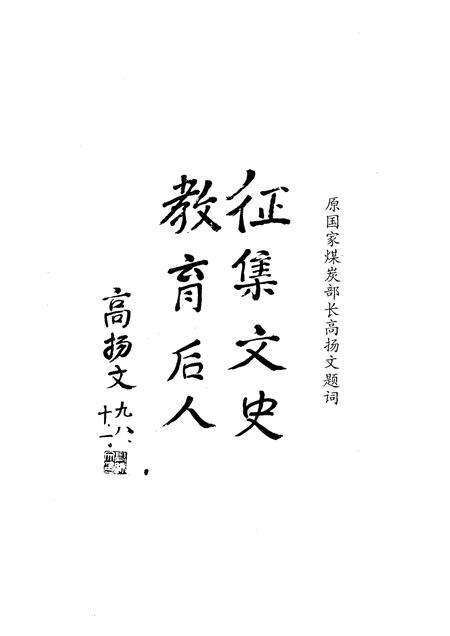 原国家煤炭部长高扬文题词
征集文史
教育后人
高扬文
九八、
十、一、